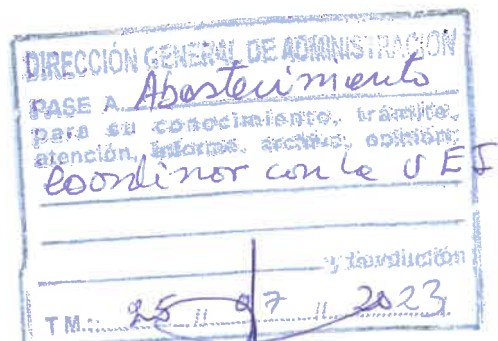 DIRECCIÓN GENERAL DE ADMINISTRACION
PASE A Abastecimiento
para su conocimiento, trámite,
atención, informe, archivo, opinión;
Coordinar con la UEI
y devolución
T M.: 25 // 07 // 2023